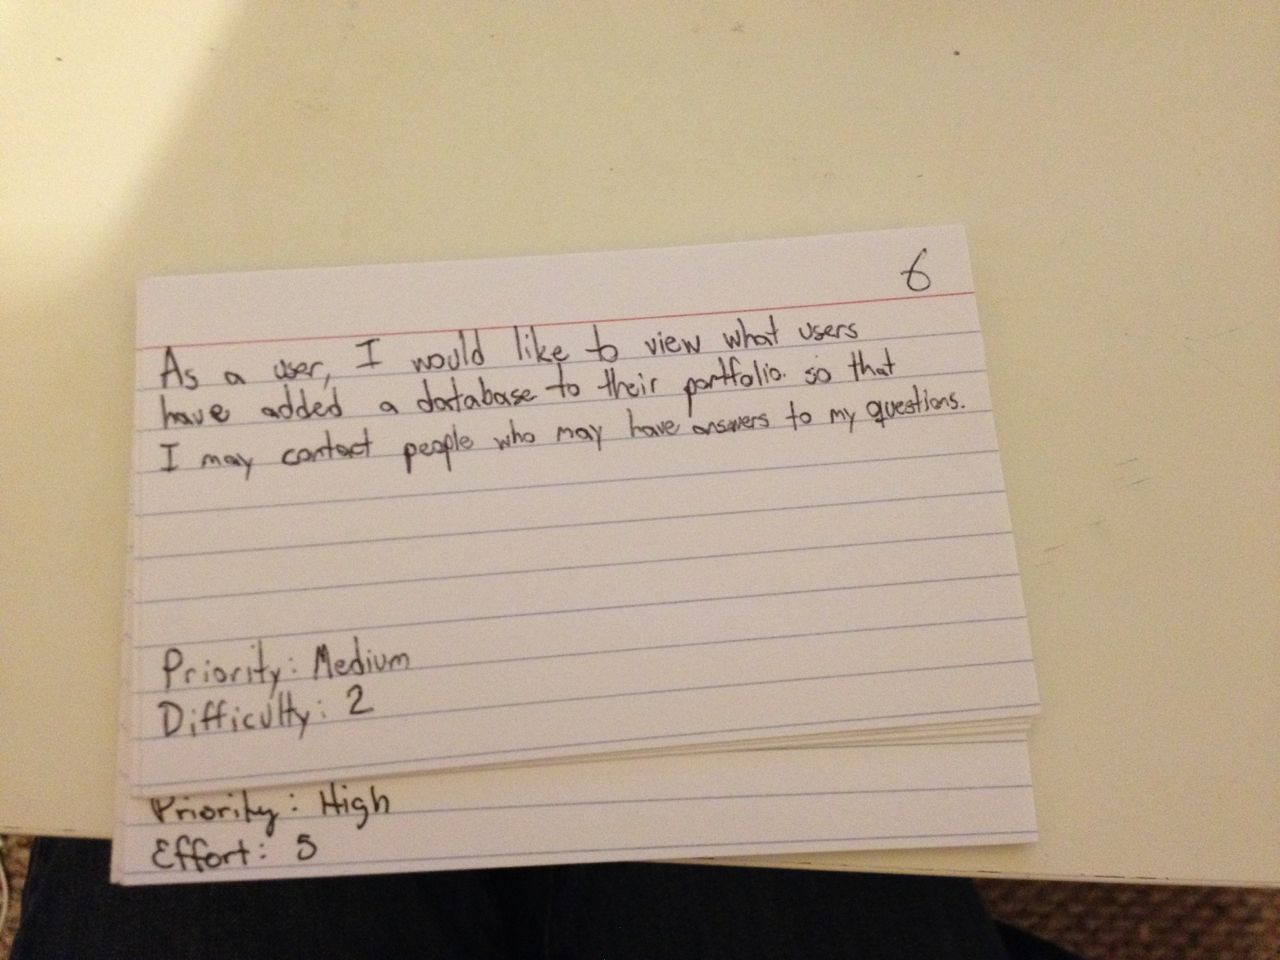 6
As a user, I would like to view what users
have added a database to their portfolio. so that
I may contact people who may have answers to my questions.
Priority: Medium
Difficulty: 2
Priority: High
Effort: 5